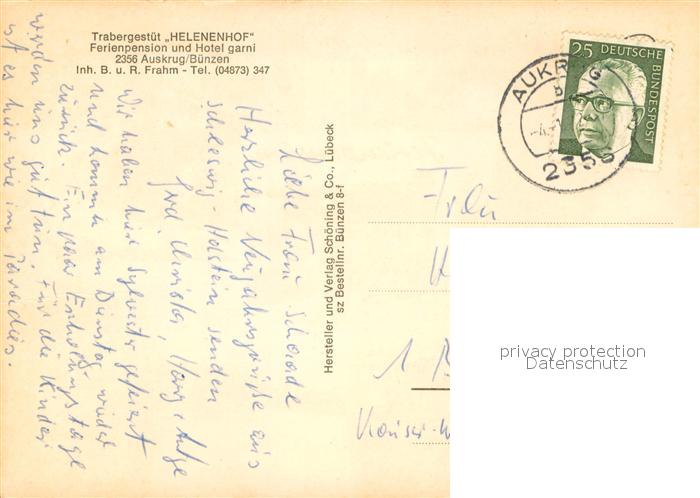 Trabergestüt „HELENENHOF"
Ferienpension und Hotel garni
2356 Auskrug/Bünzen
Inh. B. u. R. Frahm - Tel. (04873) 347
Liebe Frau Schaade
Herzliche Neujahrsgrüße aus
Schleswig-Holstein senden
Gerd, Christa, Margit, Antje
Wir haben hier Sylvester gefeiert
und kommen am Dienstag wieder
zurück. Ein paar Erholungstage
werden uns gut tun. Für die Kinder
ist es hier wie im Paradies.
Hersteller und Verlag Schöning & Co., Lübeck
sz Bestellnr. Bünzen 8-f
25 DEUTSCHE BUNDESPOST
AUKRUG
2356
Frau
1 B
Kaiser-W
privacy protection
Datenschutz